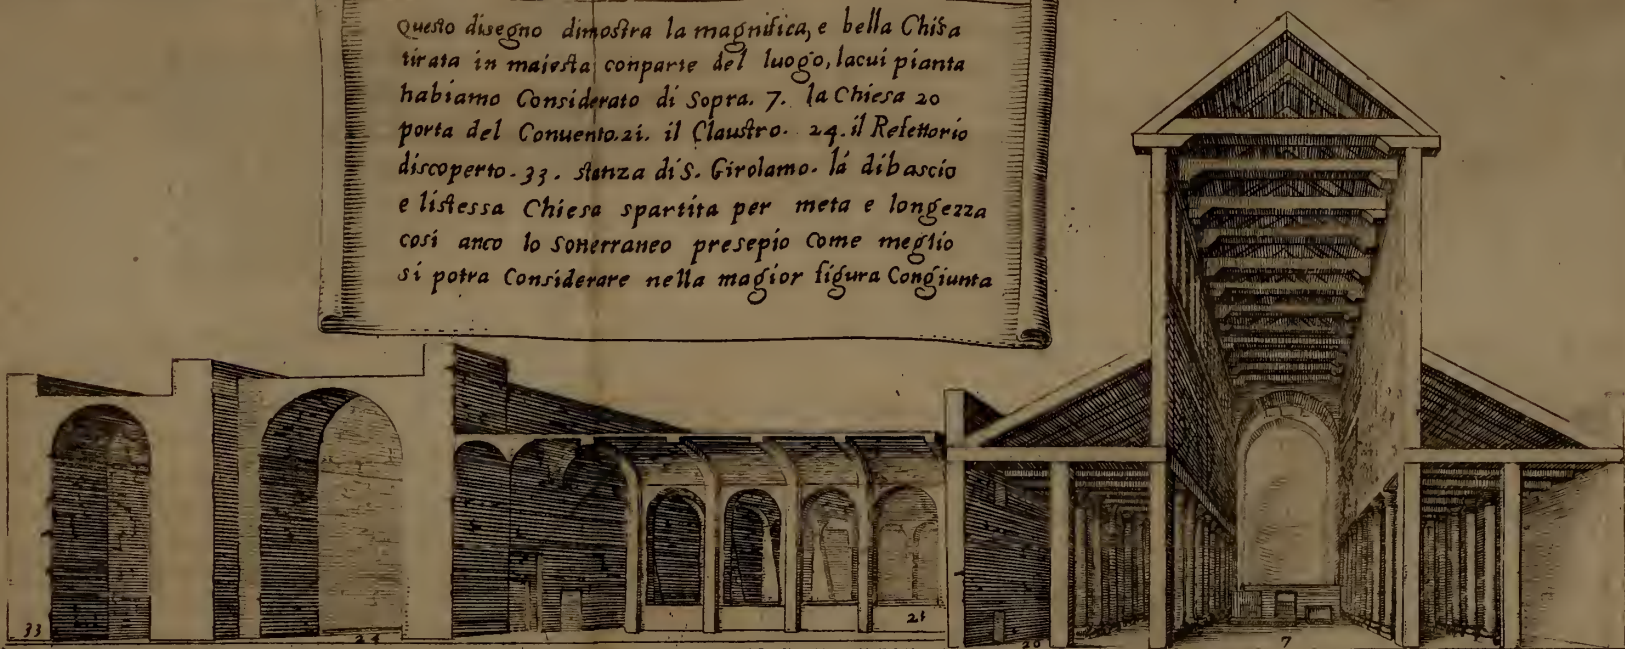 Questo disegno dimostra la magnifica, e bella Chisa
tirata in maiesta conparte del luogo, lacui pianta
habiamo Considerato di Sopra. 7. la Chiesa 20
porta del Conuento. 21. il Claustro. 24. il Refettorio
discoperto. 33. stanza di S. Girolamo. lá dibascio
e listessa Chiesa spartita per meta e longezza
cosi anco lo Sotterraneo presepio Come meglio
si potra Considerare nella magior figura Congiunta
33
24
21
20
7